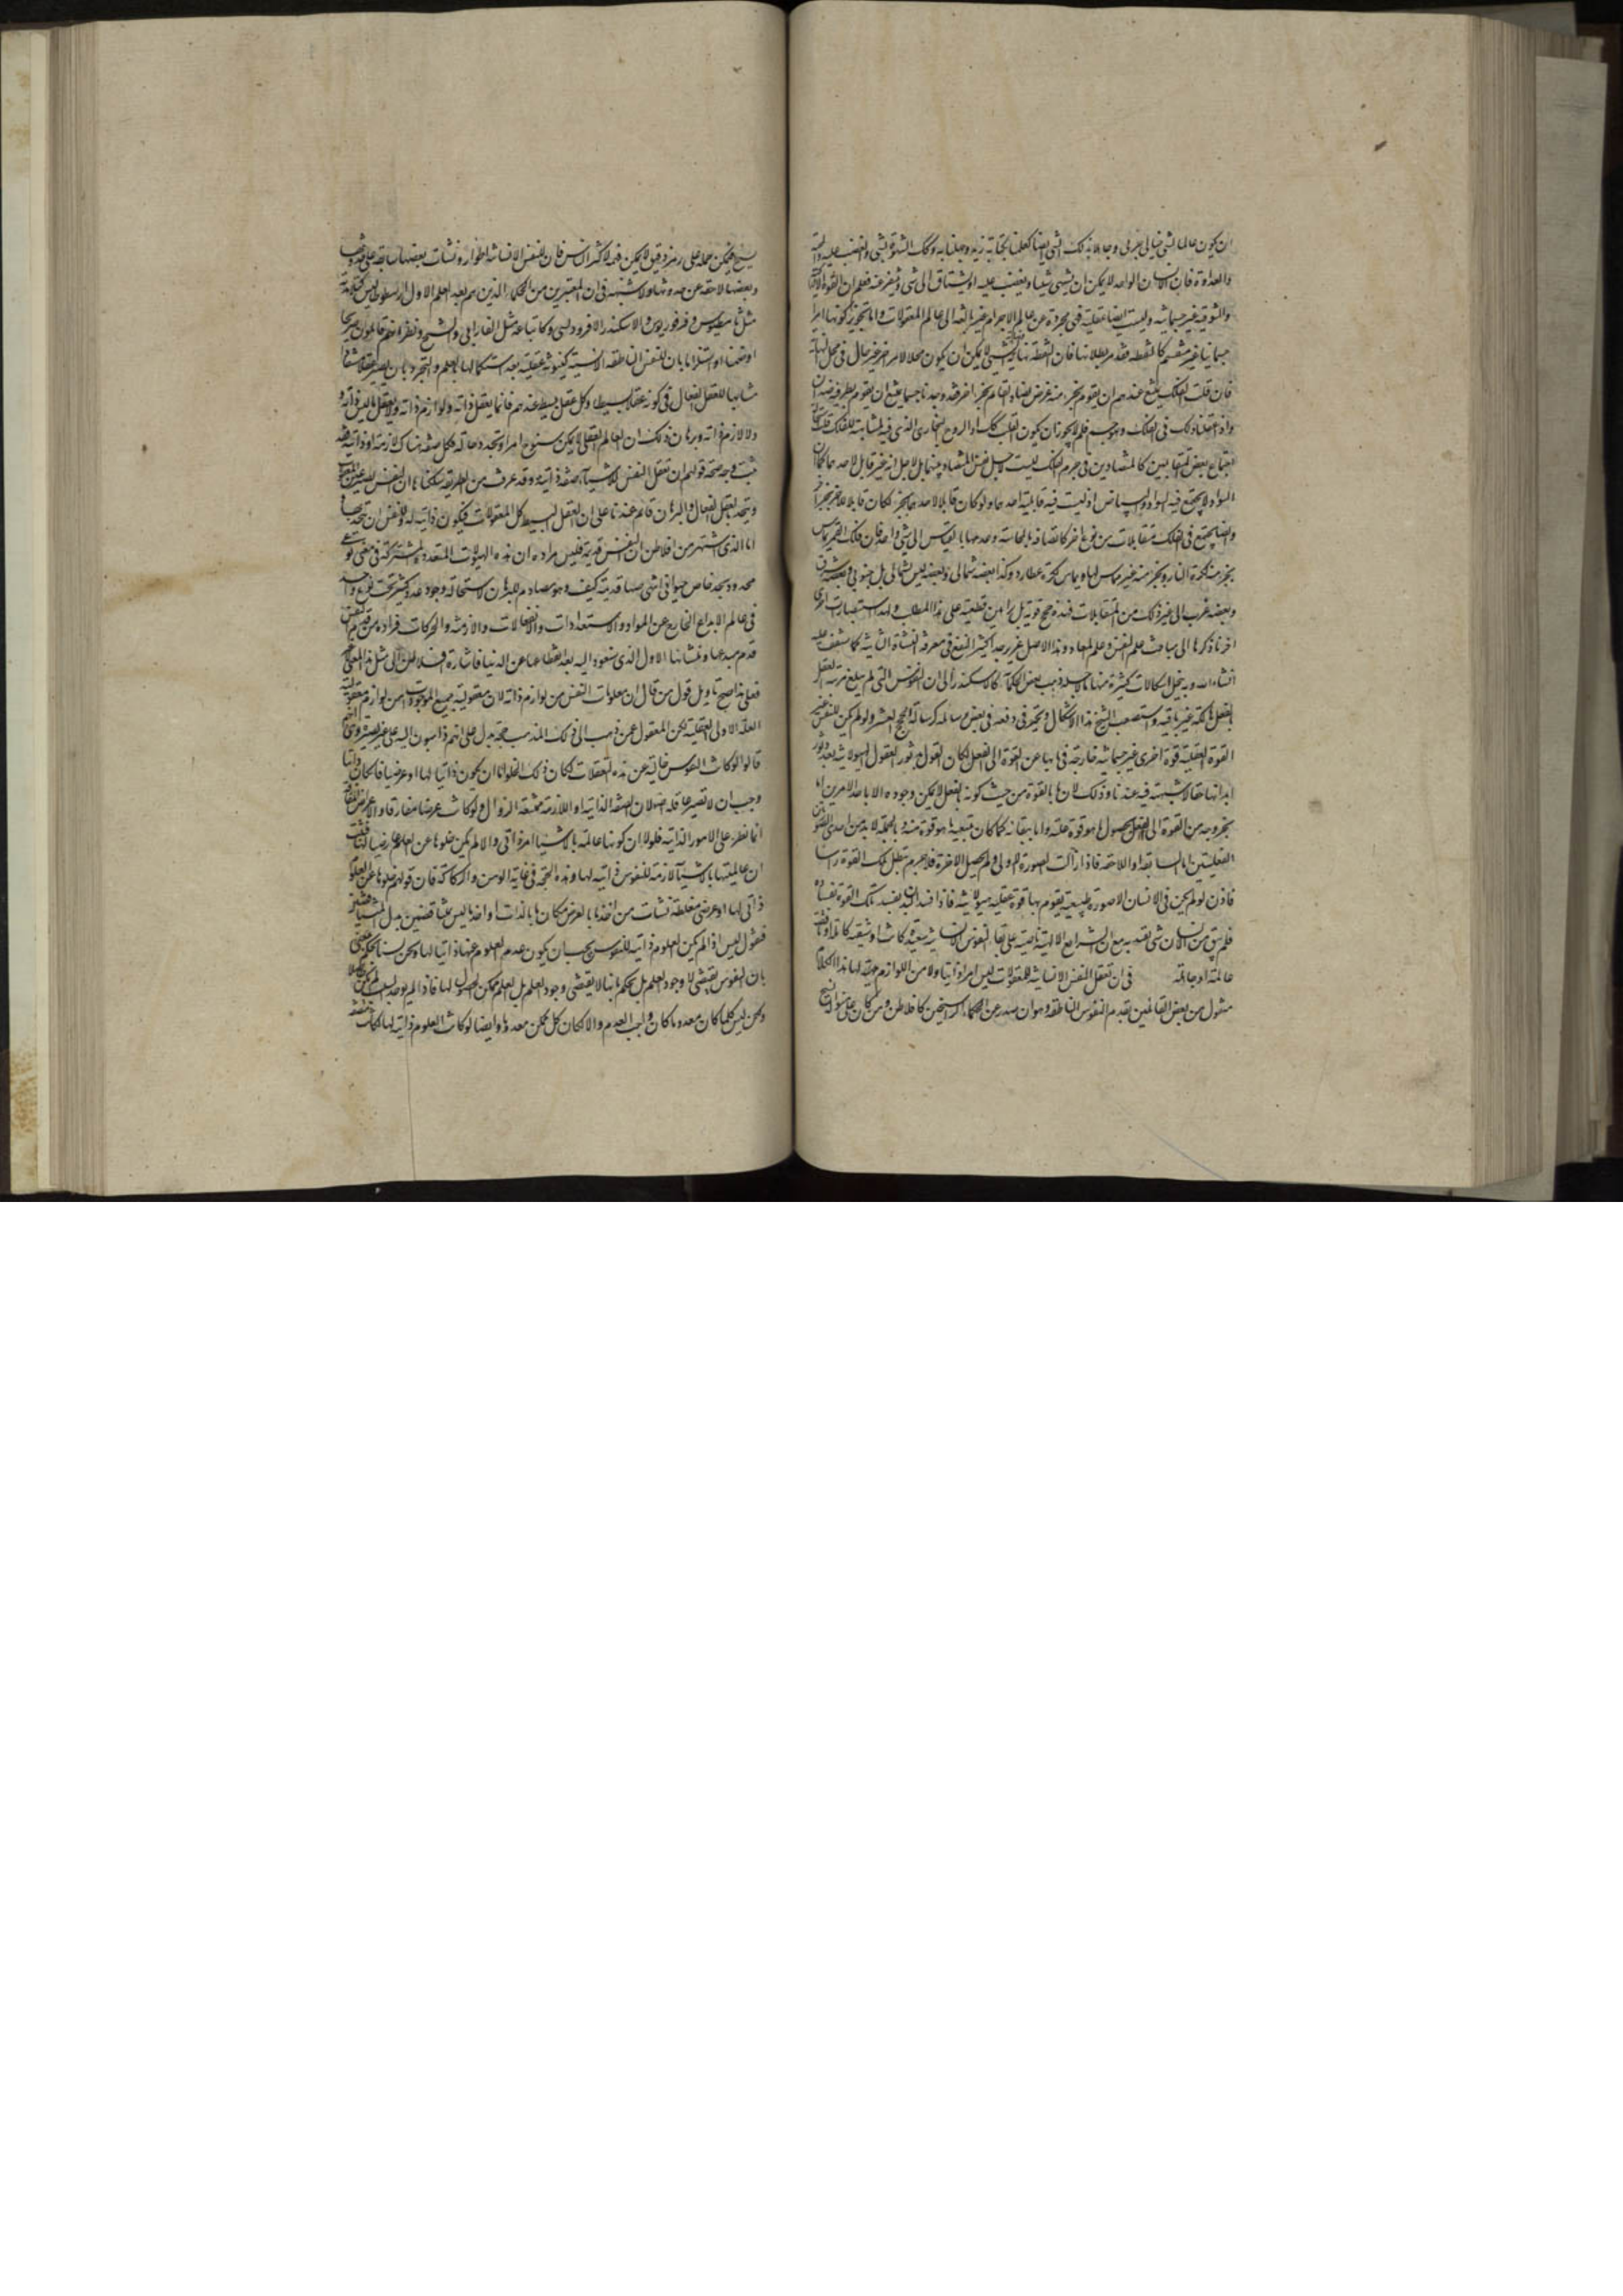 ان يكون عالما بشي خيالي جزئي وجاهلا بذلك الشي ايضا كعلمنا بكتابة زيد وجهلنا به وكك الشهوة لشي والغضب عليه والمحبة
والعداوة فان الانسان الواحد لا يمكن ان يشتهي شيئا ويغضب عليه او يشتاق الى شي وينفر عنه فعلم ان القوة
والشوقية غير جسمانية وليست ايضا عقلية فهي مجردة عن عالم الاجرام غير بالغة الى عالم المعقولات واما تجويز كونها امرا
جسمانيا غير منقسم كالنقطة فقد مر بطلانه فان النقطة نهاية والنهاية الشي لا يمكن ان يكون محلا لامر اخر غير حال في محل النهاية
فان قلت الفلك يمتنع عندهم ان يقوم بجزء منه عرض يضاد القائم بجزء اخر فقد وجدنا جسما يمتنع ان يقوم بطرفيه ضدان
واذا عقلنا ذلك في الفلك وهو جسم فلم لا يجوز ان يكون القلب كك او الروح البخاري الذي فيه لمشابهته للفلك قلت
اجتماع بعض المتقابلين كالمتضادين في جرم الفلك ليست لاجل نفس المتضاد بينهما بل لاجل انه غير قابل لاحدهما كما ان
السواد لا يجتمع فيه السواد والبياض اذ ليست فيه قابلية احدهما ولو كان قابلا لاحدهما بجزء لكان قابلا للاخر بجزء
وايضا يجتمع في الفلك متقابلات من نوع اخر كاتصافه بالمماسة وعدمها بالقياس الى شي واحد فان فلك القمر يماس
بجزء منه كرة النار وبجزء منه غير مماس لها ويماس كرة عطارد وكذا بعضه شمالي وبعضه ليس شمالي بل جنوبي وبعضه شرق
وبعضه غرب الى غير ذلك من المتقابلات فهذه حجج قوية بل براهين قطعية على هذا المطلب ولهذا استبصارات اخرى
اخرنا ذكرها الى مباحث علم النفس وعلم المعاد وهذا الاصل عزيز جدا كثير النفع في معرفة النشأة الثانية كما ستقف عليه
انشاء الله وبه ينحل اشكالات كثيرة منها ما لاجله ذهب بعض الحكماء كالاسكندر الى ان النفوس التي لم يبلغ مرتبة العقل
بالفعل هالكة غير باقية واستصعب الشيخ هذا الاشكال وتحير في دفعه في بعض رسائله كرسالة الحجج العشر ولو لم يكن للنفس غير
القوة العقلية قوة اخرى غير جسمانية خارجة في بابها عن القوة الى الفعل لكان القول بدثور العقول الهيولانية بعد دثور
ابدانها حقا لا شبهة فيه عندنا وذلك لان ما بالقوة من حيث كونه بالقوة لا يمكن وجوده الا باحد الامرين اما
بخروجه من القوة الى الفعل بحصول ما هو قوة عليه واما ببقائه كما كان بتبعية ما هو قوة منه وبالجملة لا بد من احدى الصورتين
الفعليتين اما السابقة او اللاحقة فاذا زالت الصورة الاولى ولم يحصل الاخرة فلا جرم تبطل تلك القوة راسا
فاذن لو لم يكن في الانسان الا صورة طبيعية يقوم بها قوة عقلية هيولانية فاذا فسد البدن يفسد تلك القوة بفساده
فلم يبق من الانسان شي يعتد به مع ان الشرايع الالهية ناصة على بقاء النفوس الانسانية سعيدة كانت او شقية كاملة او ناقصة
عالمة او جاهلة في ان تعقل النفس الانسانية للمعقولات ليس امرا ذاتيا ولا من اللوازم لها هذا الكلام
منقول من بعض القائلين بقدم النفوس الناطقة وهو ان صدر عن الحكماء الراسخين كافلاطن ومن كان على منواله نسج
يسيغ فيمكن حمله على رمز دقيق لا يمكن فهمه لاكثر الناس فان للنفس الانسانية اطوارا ونشات بعضها سابقة على حدوثها
وبعضها لاحقة عن حدوثها ولا شبهة في ان المعتبرين من الحكماء الذين هم بعد المعلم الاول ارسطوطاليس كتلامذته
مثل ثامسطيوس وفرفوريوس والاسكندر الافروديسي وكاتباعه مثل الفارابي والشيخ ونظرائهم قائلون صريحا
او ضمنا او استلزاما بان للنفس الناطقة الانسية كينونة عقلية بعد استكمالها بالعلم والتجرد بان يصير عقلا مستفادا
مشابها للعقل الفعال في كونه عقلا بسيطا وكل عقل بسيط عندهم فانما يعقل ذاته ولوازم ذاته ولا يعقل ما ليس ذاته
ولا لازم ذاته وبرهان ذلك ان العالم العقلي لا يمكن سنوح امر او تجدد حالة فكل صفة هناك لازمة او ذاتية فقد
ثبت وجه صحة قولهم ان تعقل النفس للاشياء صفة ذاتية وقد عرفت من الطريقة سلكناها ان النفس
ويتحد بالعقل الفعال والبرهان قائم عندنا على ان العقل البسيط كل المعقولات فيكون ذاتية له وللنفس ان تحدت بها
اما الذي اشتهر من افلاطن ان النفس قديمة فليس مراده ان هذه الهويات المتعددة المشتركة في معنى نوعي
محدود بحد خاص حيواني اشخاصها قديمة كيف وهو مصادم للبرهان لاستحالة وجود عدد كثير تحت نوع واحد
في عالم الابداع الخارج عن المواد والاستعدادات والانفعالات والازمنة والحركات فمراده من قدم النفس
قدم مبدعها ومنشاها الاول الذي ستعود اليه بعد انقطاعها عن الدنيا فاشارة افلاطن الى مثل هذا المعنى
فعلى هذا صح تاويل قول من قال ان معلومات النفس من لوازم ذاته لان معقولية جميع الموجودات من لوازم معقولية
العلة الاولى العقلية لكن المنقول عمن ذهب الى ذلك المذهب حجة يدل على انهم ذاهبون اليه على غير بصيرة وهي انهم
قالوا لو كانت النفوس خالية عن هذه التعقلات لكان ذلك الخلو اما ان يكون ذاتيا لها او عرضيا فان كان ذاتيا
وجب ان لا تصير عاقلة اصلا لان الصفة الذاتية او اللازمة ممتنعة الزوال ولو كانت عرضا مفارقا والاعراض المفارقة
انما تطرء على الامور الذاتية فلولا ان كونها عالمة بالاشياء امر ذاتي والا لم يكن خلوها عن العلم عارضا لها فثبت
ان عالميتها بالاشياء لازمة للنفوس ذاتية لها وهذه الحجة في غاية الوهن والركاكة فان قولهم خلوها عن العلوم
ذاتي لها او عرضي مغلطة نشات من اخذ ما بالعرض مكان ما بالذات او اخذ ما ليس بنقيض
فنقول ليس اذا لم يكن العلوم ذاتية للنفوس يجب ان يكون عدم العلوم عنها ذاتيا لها ونحن لسنا نحكم
بان النفوس يقتضي لا وجود العلم بل نحكم بانها لا يقتضي وجود العلم بل العلم ممكن الحصول لها فاذا لم يوجد
ولكن ليس كلما كان معدوما كان واجب العدم والا لكان كل ممكن معدوما وايضا لو كانت العلوم ذاتية لها لكانت